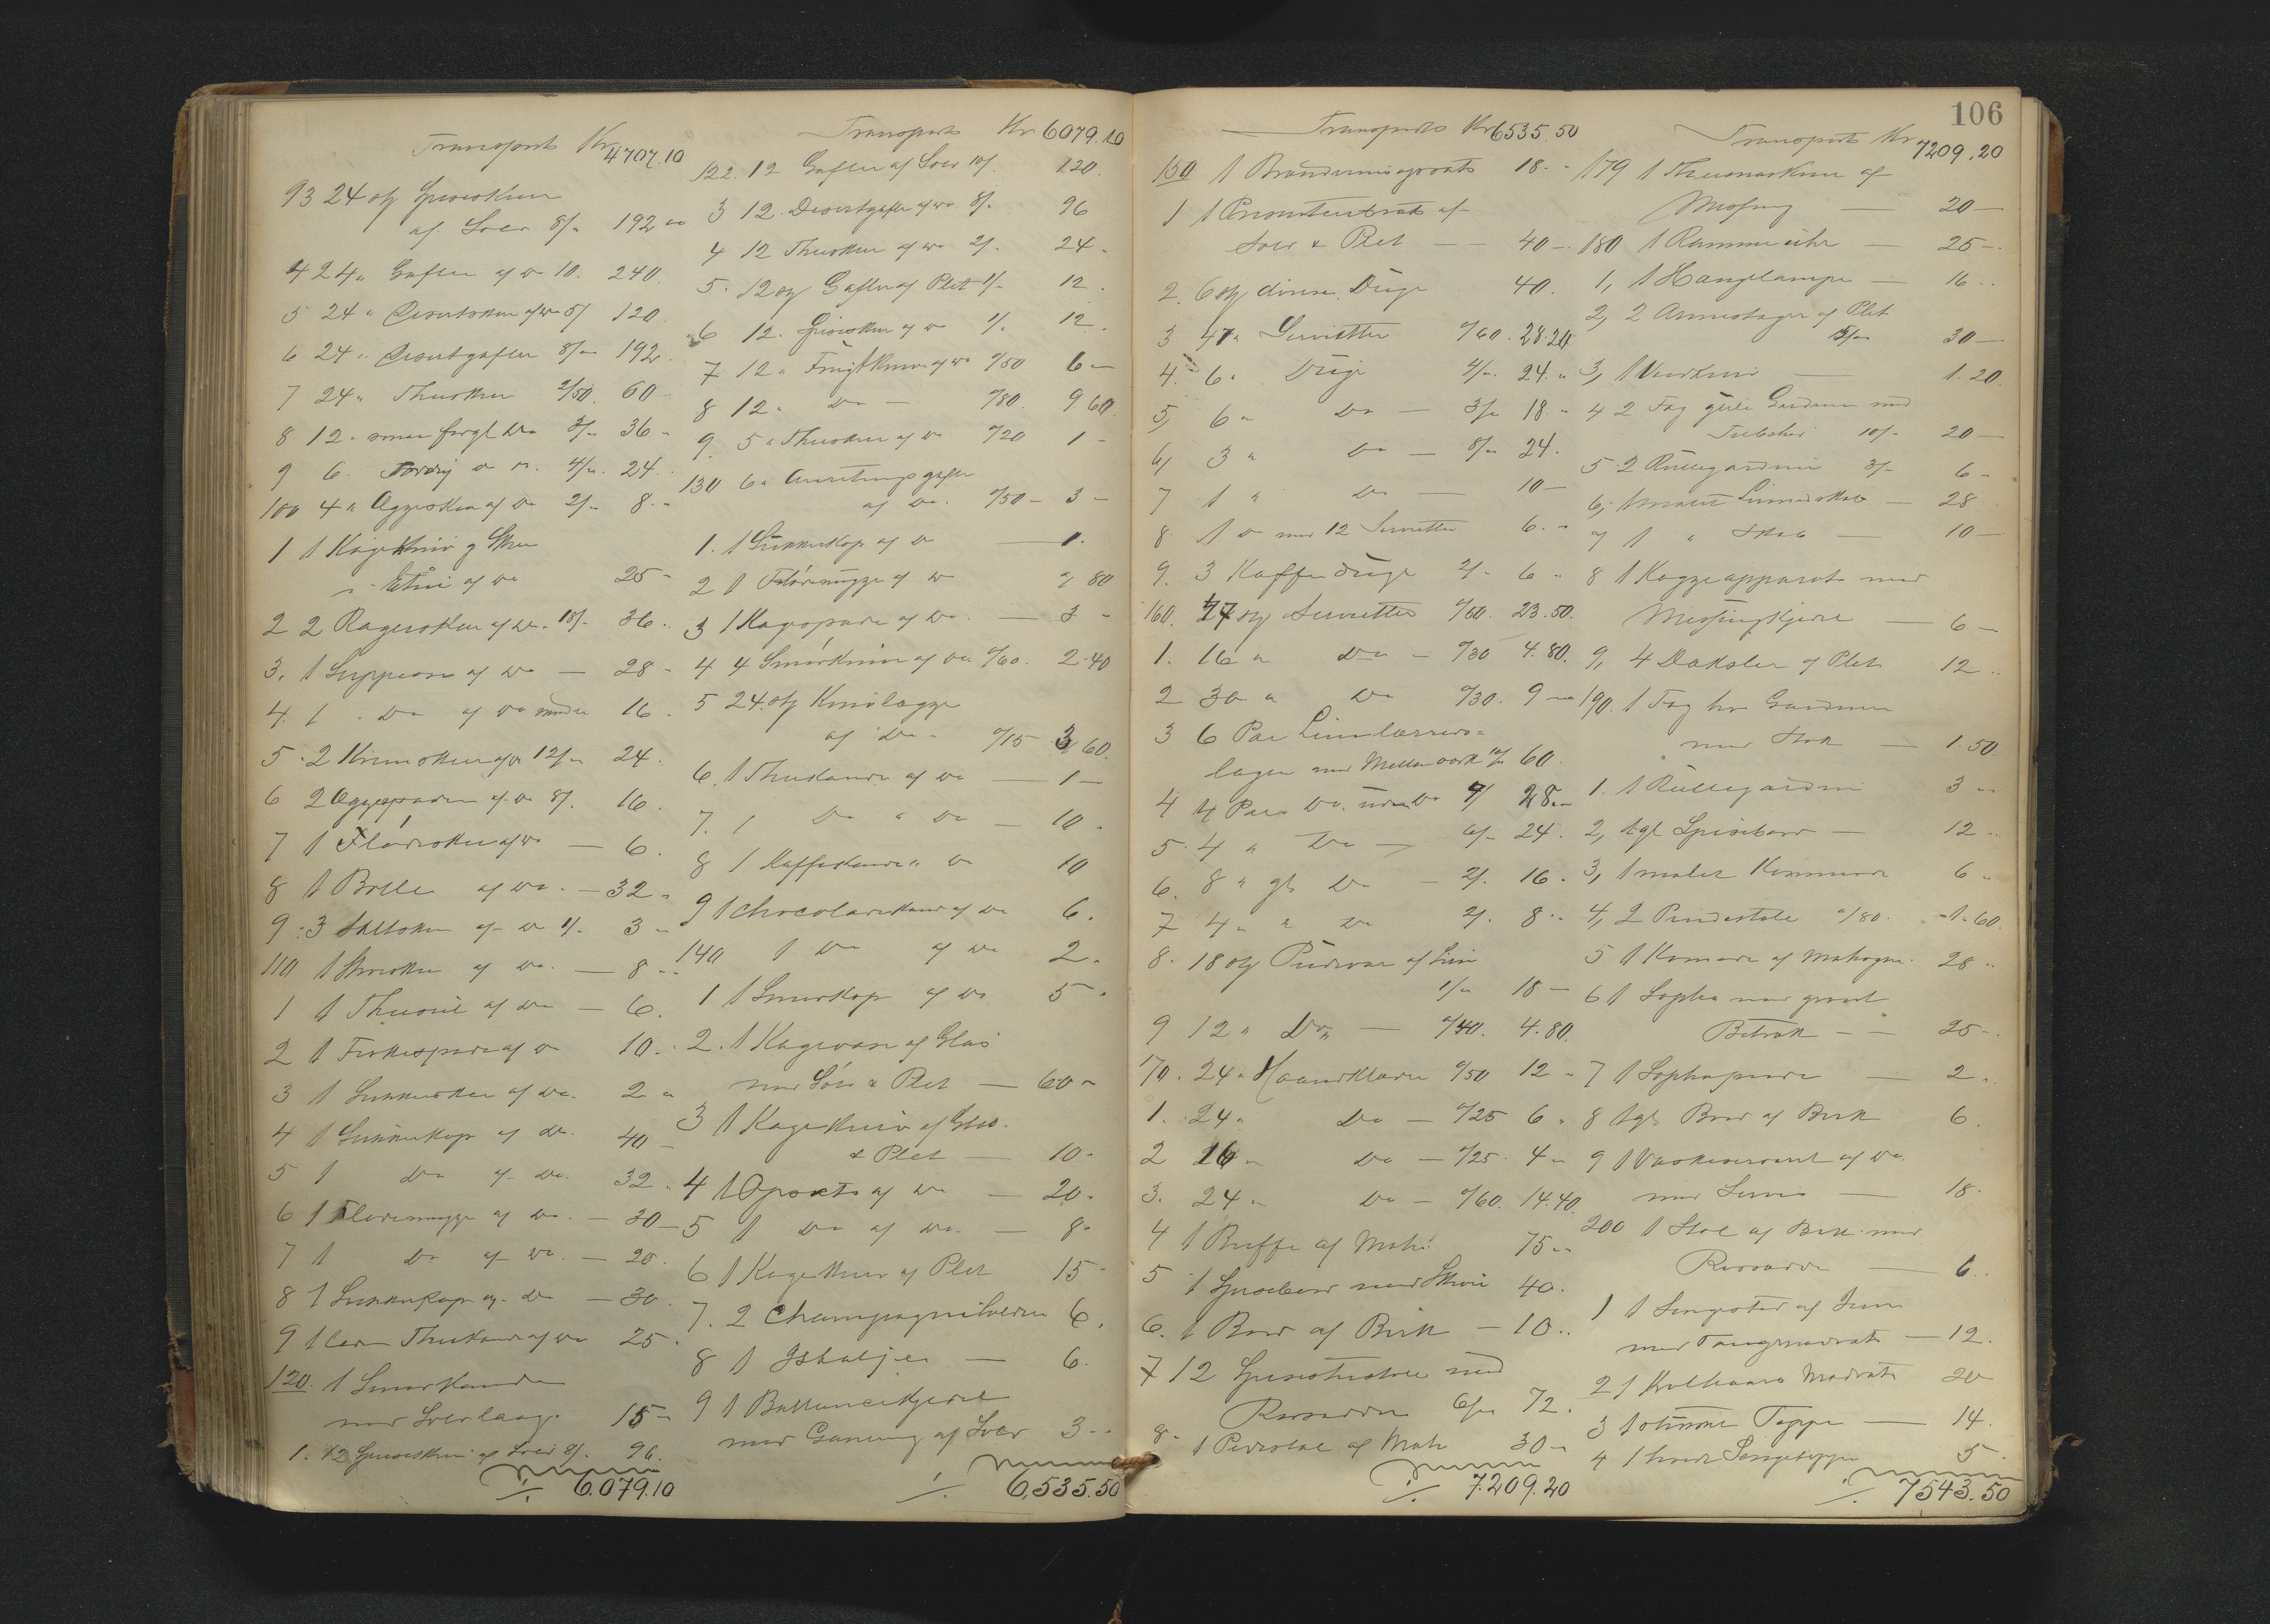 Transport Kr 4707.10
93 24 stk Spiseskeer
af Sølv 8/- 192 "
4 24 " Gafler af do 10. 240.
5 24 " Dessertskeer af do 5/ 120
6 24 " Dessertgafler 8/- 192
7 24 " Theskeer 2/50. 60
8 12 " smaa forgl. do 3/- 36 -
9 6. do 4/- 24.
100 4 " Æggeskeer af do 2/- 8. "
1 1 Kagekniv og Skee
i Etui af do 25 -
2 2 Ragouskeer af do 18/- 36.
3. 1 Suppeøse af do — 28 -
4. 1 do af do mindre 16.
5 2 Kremskeer af do 12/- 24.
6 2 Æggespader af do 8/. 16.
7 1 Flødeskee af do — 6.
8 1 Bolle af do. — 32 -
9 3 Saltskeer af do 1/. 3 -
110 1 skee af do. — 8 -
1 1 Thesiil af do — 6.
2 1 Fiskespade af do 10.
3 1 Sukkerskee af do. 2 "
4 1 Sukkerkop af do. 40 -
5 1 do af do. 32.
6 1 Flødemugge af do. — 30 -
7 1 do af do. — 20.
8 1 Sukkerkop af do — 30
9 1 Thekande af do 25.
120. 1 Kande
med Sølvlaag. 15 -
1. 12 Spiseskeer af Sølv 8/. 96.
./. 6.079.10
Transport Kr 6079.10
122. 12 Gafler af Sølv 10/. 120.
3 12 Dessertgafler af do 8/- 96
4 12 Theskeer af do 2/. 24 -
5. 12 stk Gafler af Plet 1/- 12.
6 12. Spiseskeer af do 1/. 12.
7 12 " Frugtknive af do "/50 6 -
8 12 " do — "/80. 9 60.
9. 5 " Theskeer af do "/20 1 -
130 6 " Anretningsgafler
af do. "/50 - 3 -
1. 1 Sukkerkop af do — 1.
2 1 Flødemugge af do " 80
3 1 Kagespade af do. — 3 -
4 4 Smørknive af do "/60. 2.40
5 24 stk Knivlægge
af do. "/15 3 60.
6. 1 Thekande af do — 1 -
7. 1 do " do — 10.
8 1 Kaffekande " do 10
9 1 Chocoladekande af do 6.
140 1 do af do 2.
1 1 Smørkop af do 5 "
2. 1 Kagevase af Glas
med Sølv & Plet — 60 -
3 1 Kagekurv af Glas
& Plet — 10 -
4 1 Opsats af do — 20.
5 1 do af do. — 8 -
6 1 Kagekurv af Plet 15 -
7. 2 Champagnekølere 6.
8 1 Isbalje — 6.
9 1 Ballancekjede
med af Sølv 3 - -
./. 6,535.50
106
Transport Kr 6535.50
150 1 Brændevinsopsats 18. -
1 1 af
Sølv & Plet — 40 -.
2. 6 stk diverse Duge 40.
3 47 " Servietter "/60. 28.20
4. 6 " Duge 4/-. 24. "
5, 6 " do — 3/- 18. "
6, 3 " do — 8/- 24.
7 1 " do — 10 -
8. 1 do med 12 Servietter 6. -
9. 3 Kaffeduge 2/- 6 "
160. 47 stk Servietter "/50. 23.50.
1. 16 " do — "/30 4.80.
2 30 " do "/30. 9 -
3 6 Par Linlærreds-
lagen med Mellemværk 10/- 60.
4 4 Par do. uden do 7/ 28. -
5. 4 " do — 6/- 24.
6. 8 " gl. do — 2/. 16.
7 4 " " do 2/. 8. -
8. 18 stk Pudevaar af Lin
1/- 18 -
9 12 " do — "/40. 4.80.
170. 24 " Haandklæder "/50 12 -
1. 24 " do — "/25 6.
2 16 " do — "/25. 4 -
3. 24 " do — "/60. 14.40.
4 1 Buffe af Mah. 75 -
5 1 Spisebord med 40.
6. 1 Bord af Birk — 10..
7 12 Spisestuestole med
Rørsæder 6/- 72.
8. 1 Piedestal af Mah 30 -
./. 7.209.20
Transport Kr 7209.20
179 1 Themaskine af
Messing — 20 -
180 1 Rammeuhr — 25 -.
1, 1 Hængelampe — 16..
2, 2 Armestager af Plet
15/- 30 -
3, 1 — 1.20
4 2 Fag gule Gardiner med
Tilbehør 10/- 20 -
5 2 Rullegardiner 3/- 6 -
6, 1 malet Linnedskab — 28
7 1 " Skab — 10 -
8 1 Kaggeapparat med
Messingkjedel — 6 -
9, 4 Dæksler af Plet 12..
190. 1 Fag hv Gardiner
med Stok — 1.50.
1. 1 Rullegardin 3 -
2, 1 gl. Spisebord — 12 -
3, 1 malet Kommode 6 -
4, 2 Pindestole "/80. 1.60.
5 1 Komode af Mahogni. 28 -
6 1 Sopha med grønt
Betræk — 25 -
7 1 Sophapude — 2.
8 1 gl Bord af Birk 6.
9 1 Vaskeservant af do
med Servis — 18.
200 1 Stol af Birk med
Rørsæde — 6.
1 1 Sengested af Jern
med Tangmadrats — 12.
2 1 Krølhaars Madrats 20
3 1 Teppe — 14.
4 1 hvidt Sengeteppe 5 -
./. 7543.50